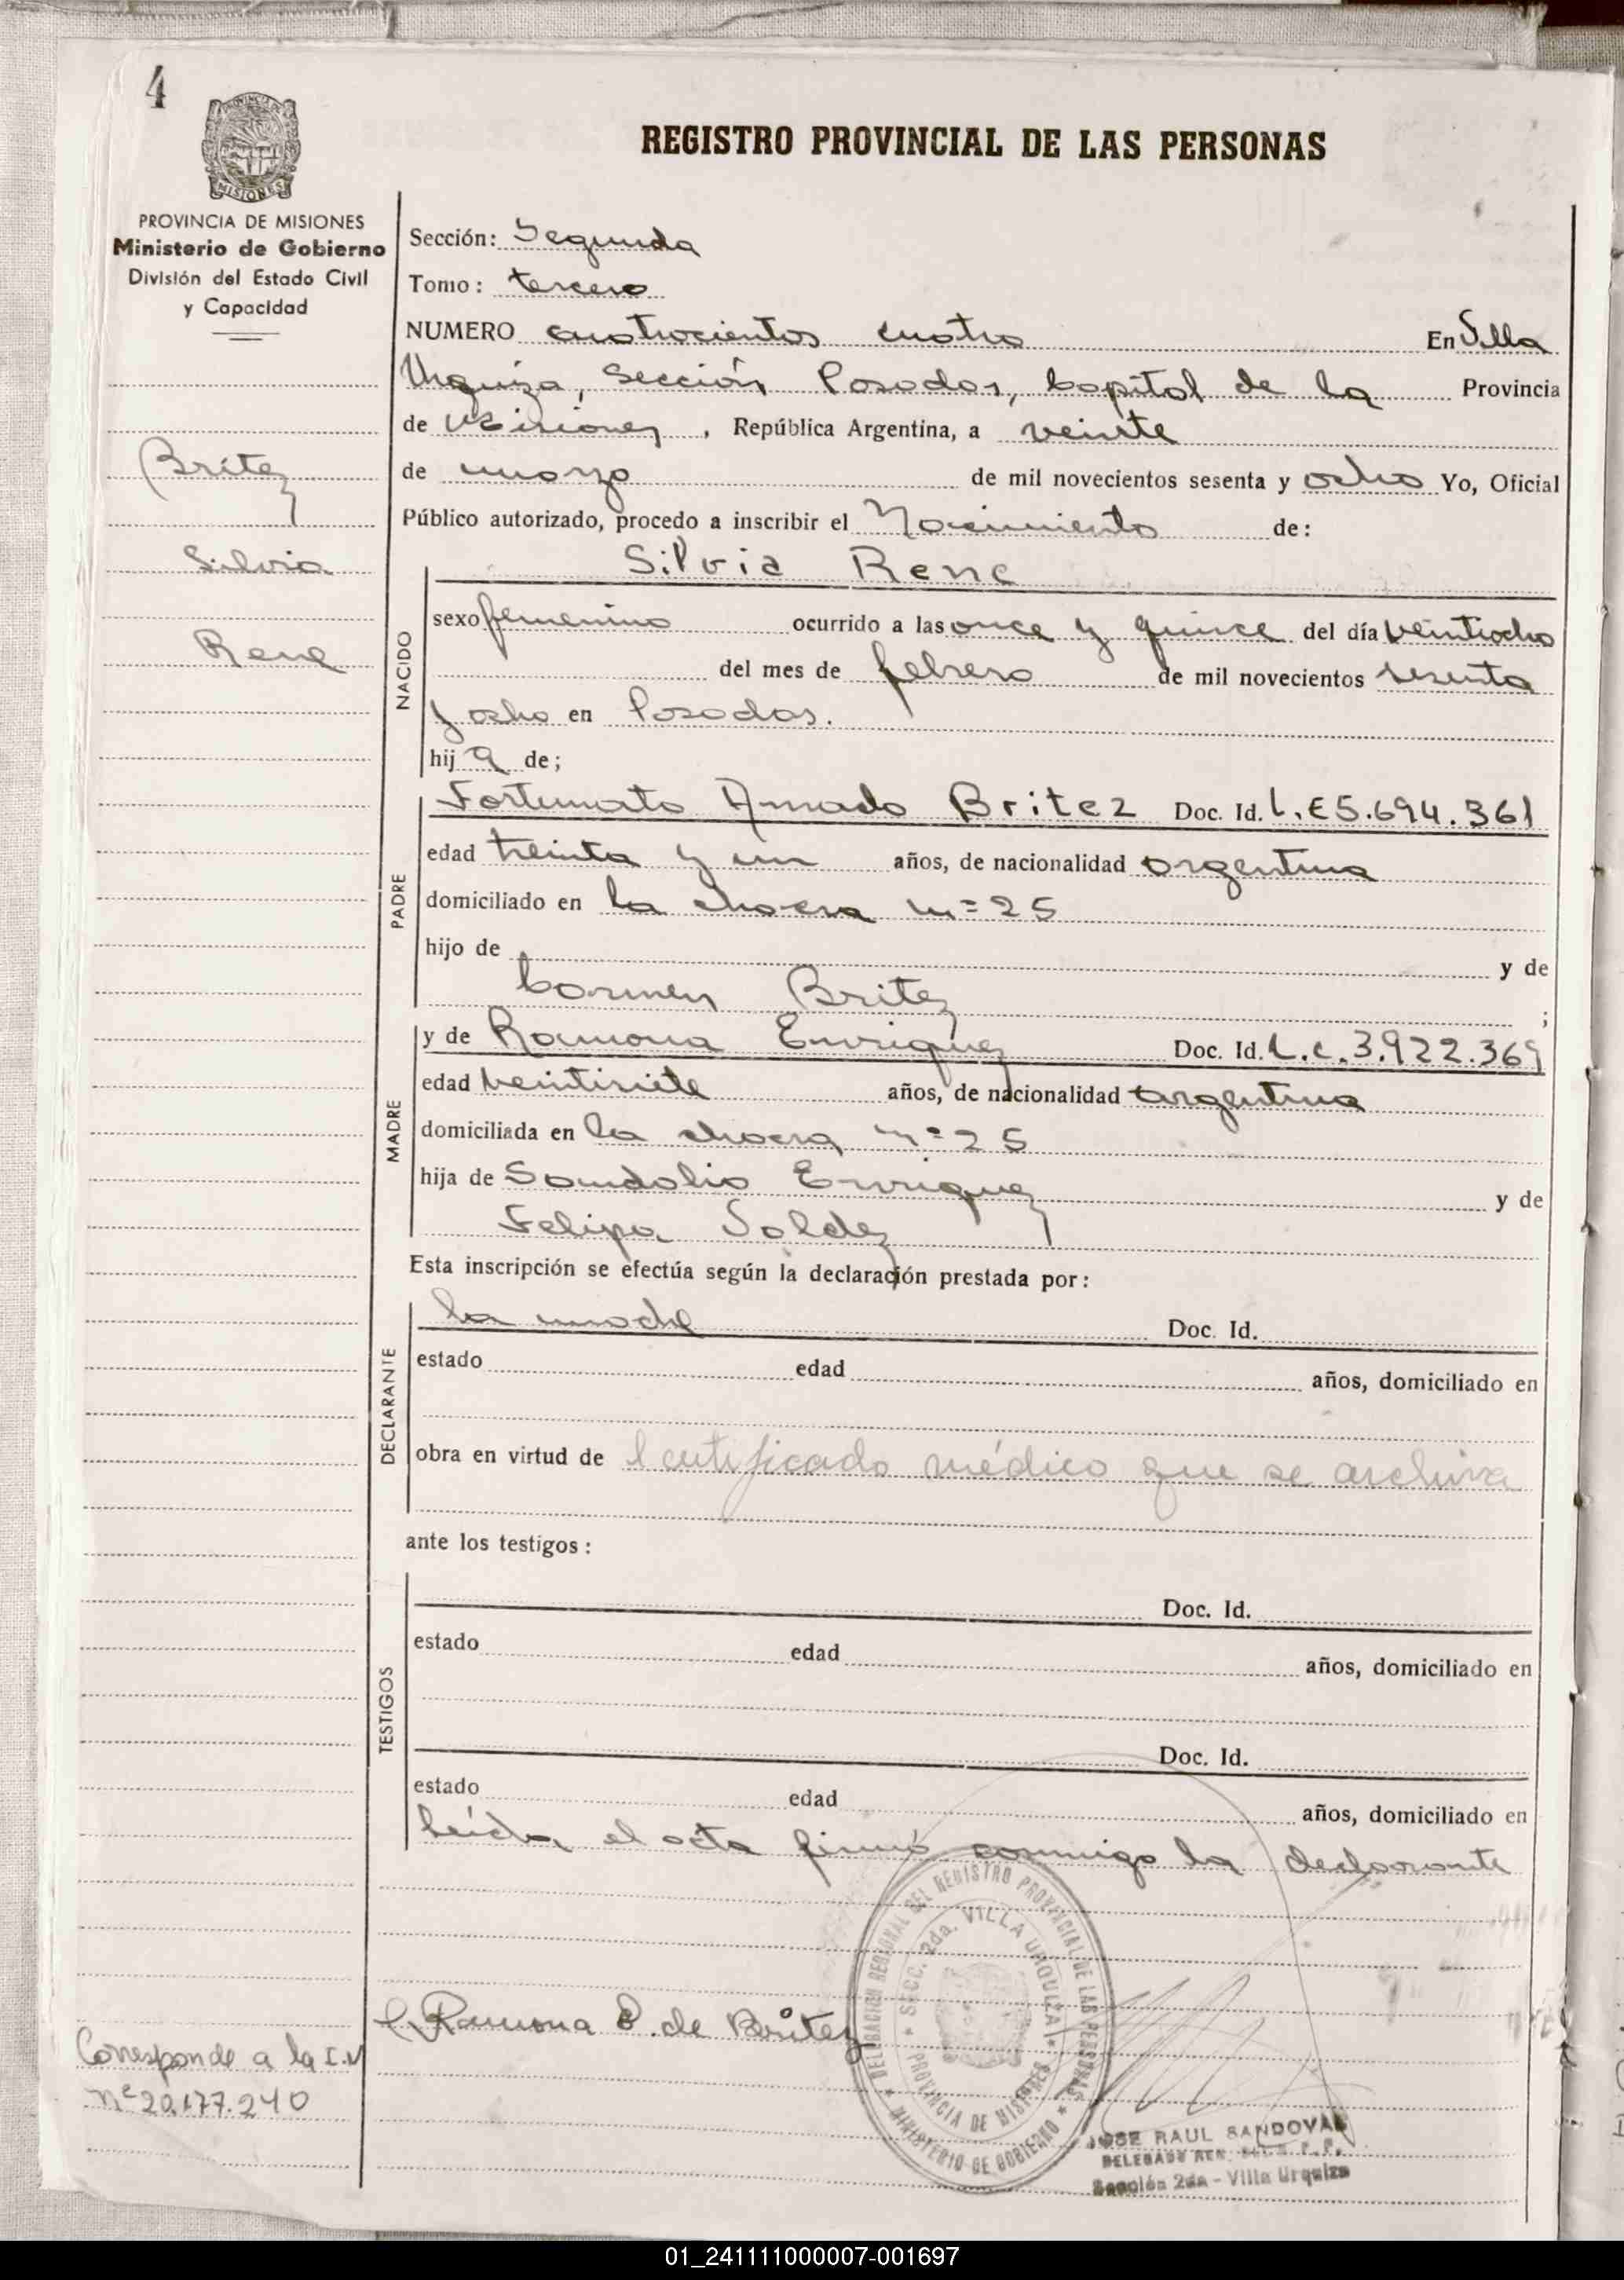 4
PROVINCIA DE MISIONES
Ministerio de Gobierno
División del Estado Civil
y Capacidad
REGISTRO PROVINCIAL DE LAS PERSONAS
Britez
Silvia
Rene
Sección: Segunda
Tomo: tercero
NUMERO cuatrocientos cuatro En Villa
Urquiza, Sección Posadas, Capital de la Provincia
de Misiones, República Argentina, a veinte
de marzo de mil novecientos sesenta y ocho Yo, Oficial
Público autorizado, procedo a inscribir el Nacimiento de:
NACIDO
Silvia Rene
sexo femenino ocurrido a las once y quince del día veintiocho
del mes de febrero de mil novecientos sesenta
y ocho en Posadas.
hij a de;
PADRE
Fortunato Amado Britez Doc. Id. L.E 5.694.361
edad treinta y un años, de nacionalidad argentina
domiciliado en la chacra nº 25
hijo de y de
Carmen Britez ;
MADRE
y de Ramona Enriquez Doc. Id. L.C. 3.922.369
edad veintisiete años, de nacionalidad argentina
domiciliada en la chacra nº 25
hija de Sandalio Enriquez y de
Felipa Saldez
Esta inscripción se efectúa según la declaración prestada por:
DECLARANTE
la madre Doc. Id.
estado edad años, domiciliado en
obra en virtud de l certificado médico que se archiva
ante los testigos:
TESTIGOS
Doc. Id.
estado edad años, domiciliado en
Doc. Id.
estado edad años, domiciliado en
Leída el acta firmó conmigo la declarante
DELEGACION REGIONAL DEL REGISTRO PROVINCIAL DE LAS PERSONAS
SECC. 2da. VILLA URQUIZA
PROVINCIA DE MISIONES
MINISTERIO DE GOBIERNO
Ramona E. de Britez
Corresponde a la I.N
Nº 20.177.240
JOSE RAUL SANDOVAL
DELEGADO REG.
Sección 2da - Villa Urquiza
01_241111000007-001697